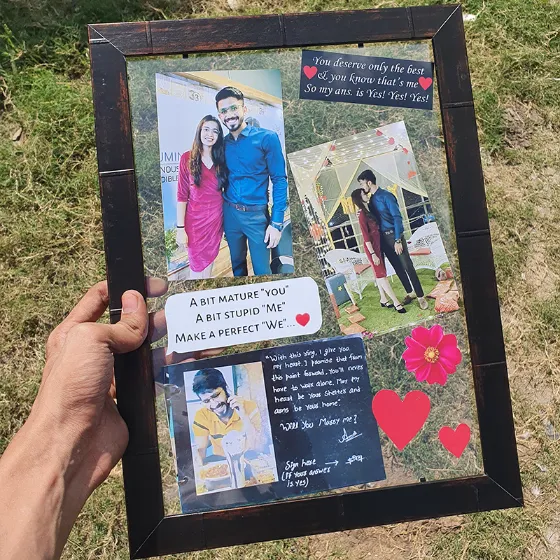 You deserve only the best
& you know that's me
So my ans. is Yes! Yes! Yes!
A BIT MATURE "YOU"
A BIT STUPID "ME"
MAKE A PERFECT "WE"...
"With this ring, I give you
my heart. I promise that from
this point forward, You'll never
have to walk alone. May my
heart be your shelter and
arms be your home".
Will You Marry me?
Sign here
(If your answer
is yes)